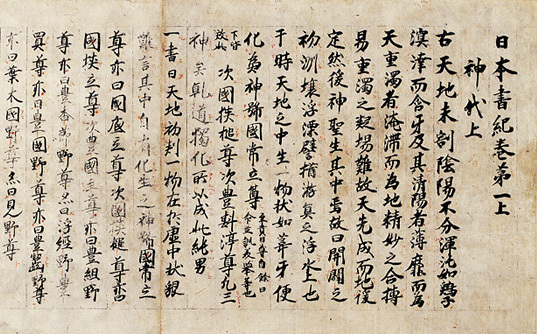 日本書紀巻第一上
神代上
古天地未剖陰陽不分渾沌如鶏子
溟涬而含牙及其清陽者薄靡而為
天重濁者淹滞而為地精妙之合搏
易重濁之凝場難故天先成而地後
定然後神聖生其中焉故曰開闢之
初洲壤浮漂譬猶游魚之浮水上也
于時天地之中生一物状如葦牙便
化為神號國常立尊
至貴曰尊自餘曰
命並訓美挙等也
次國狭槌尊次豊斟渟尊凡三
神矣乾道獨化所以成此純男
一書曰天地初判一物在於虚中状貌
難言其中自有化生之神號國常立
尊亦曰國底立尊次國狭槌尊亦曰
國狭立尊次豊國主尊亦曰豊組野
尊亦曰豊香節野尊亦曰浮経野豊
買尊亦曰豊國野尊亦曰豊齧野尊
亦曰葉木國野尊亦曰見野尊